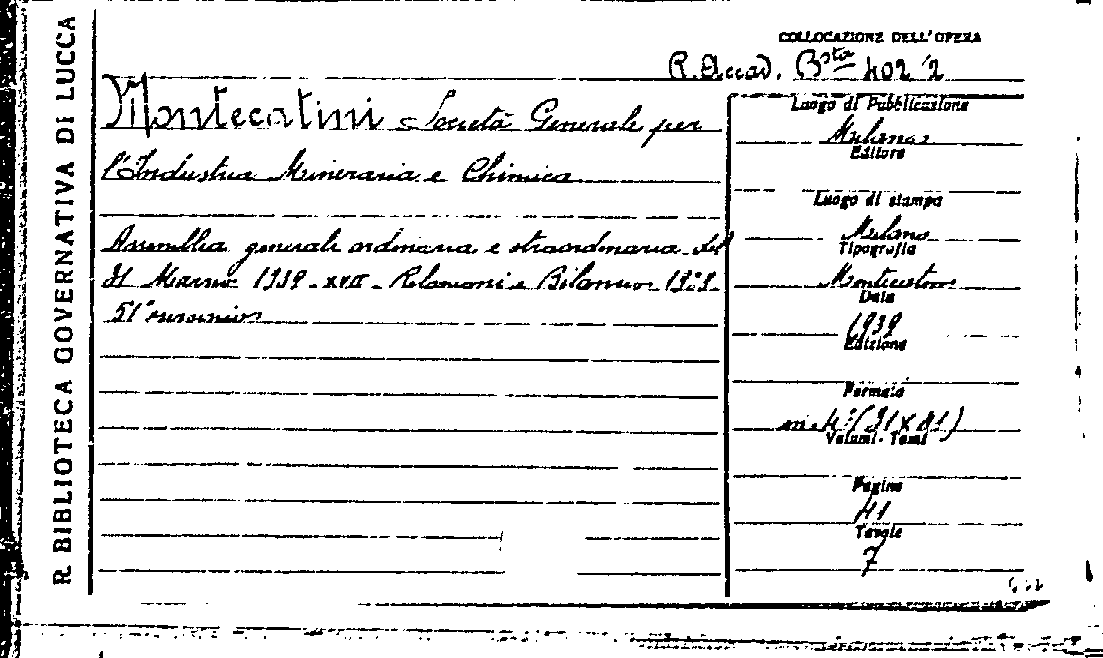 R. BIBLIOTECA GOVERNATIVA DI LUCCA
COLLOCAZIONE DELL'OPERA
R. Accad. Bsta 402 2
Montecatini Società Generale per
l'Industria Mineraria e Chimica
Assemblea generale ordinaria e straordinaria del
Marzo 1939 - XVII - Relazioni e Bilancio
51° esercizio
Luogo di Pubblicazione
Milano
Editore
Luogo di stampa
Milano
Tipografia
Data
1939
Edizione
Formato
in-4°
Volumi - Tomi
Pagine
41
Tavole
7